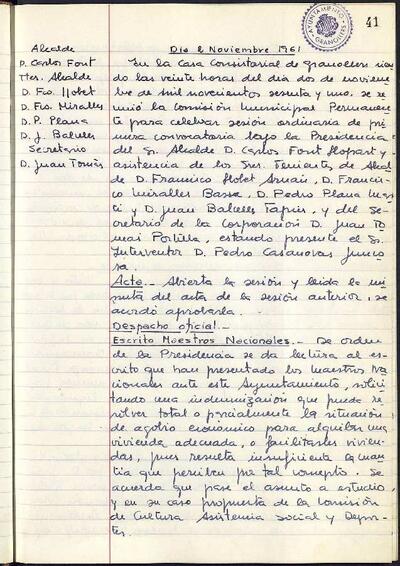 41
AYUNTAMIENTO
GRANOLLERS
Alcalde
D. Carlos Font
Ttes. Alcalde
D. Fco. Llobet
D. Fco. Miralles
D. P. Plana
D. J. Balcells
Secretario
D. Juan Tomàs
Dia 2 Noviembre 1961
En la Casa Consistorial de Granollers sien
do las veinte horas del dia dos de noviem
bre de mil novecientos sesenta y uno, se re
unió la Comisión Municipal Permanen
te para celebrar sesión ordinaria de pri
mera convocatoria bajo la Presidencia
del Sr. Alcalde D. Carlos Font Llopart y
asistencia de los Sres. Tenientes de Alcal
de D. Francisco Llobet Arnan, D. Francis
co Miralles Bassa, D. Pedro Plana
y D. Juan Balcells Tapias, y del Se
cretario de la Corporación D. Juan To
mas Portilla, estando presente el Sr.
Interventor D. Pedro Casanovas Junco
sa.
Acta.- Abierta la sesión y leida la mi
nuta del acta de la sesión anterior, se
acordó aprobarla.
Despacho oficial.-
Escrito Maestros Nacionales.- De orden
de la Presidencia se da lectura al es
crito que han presentado los maestros Na
cionales ante este Ayuntamiento, solici
tando una indemnización que pueda re
solver total o parcialmente la situación
de agobio económico para alquilar una
vivienda adecuada, o facilitarles vivien
das, pues resulta insuficiente la cuan
tia que perciben por tal concepto. Se
acuerda que pase el asunto a estudio,
y en su caso propuesta de la Comisión
de Cultura Asistencia Social y Depor-
tes.